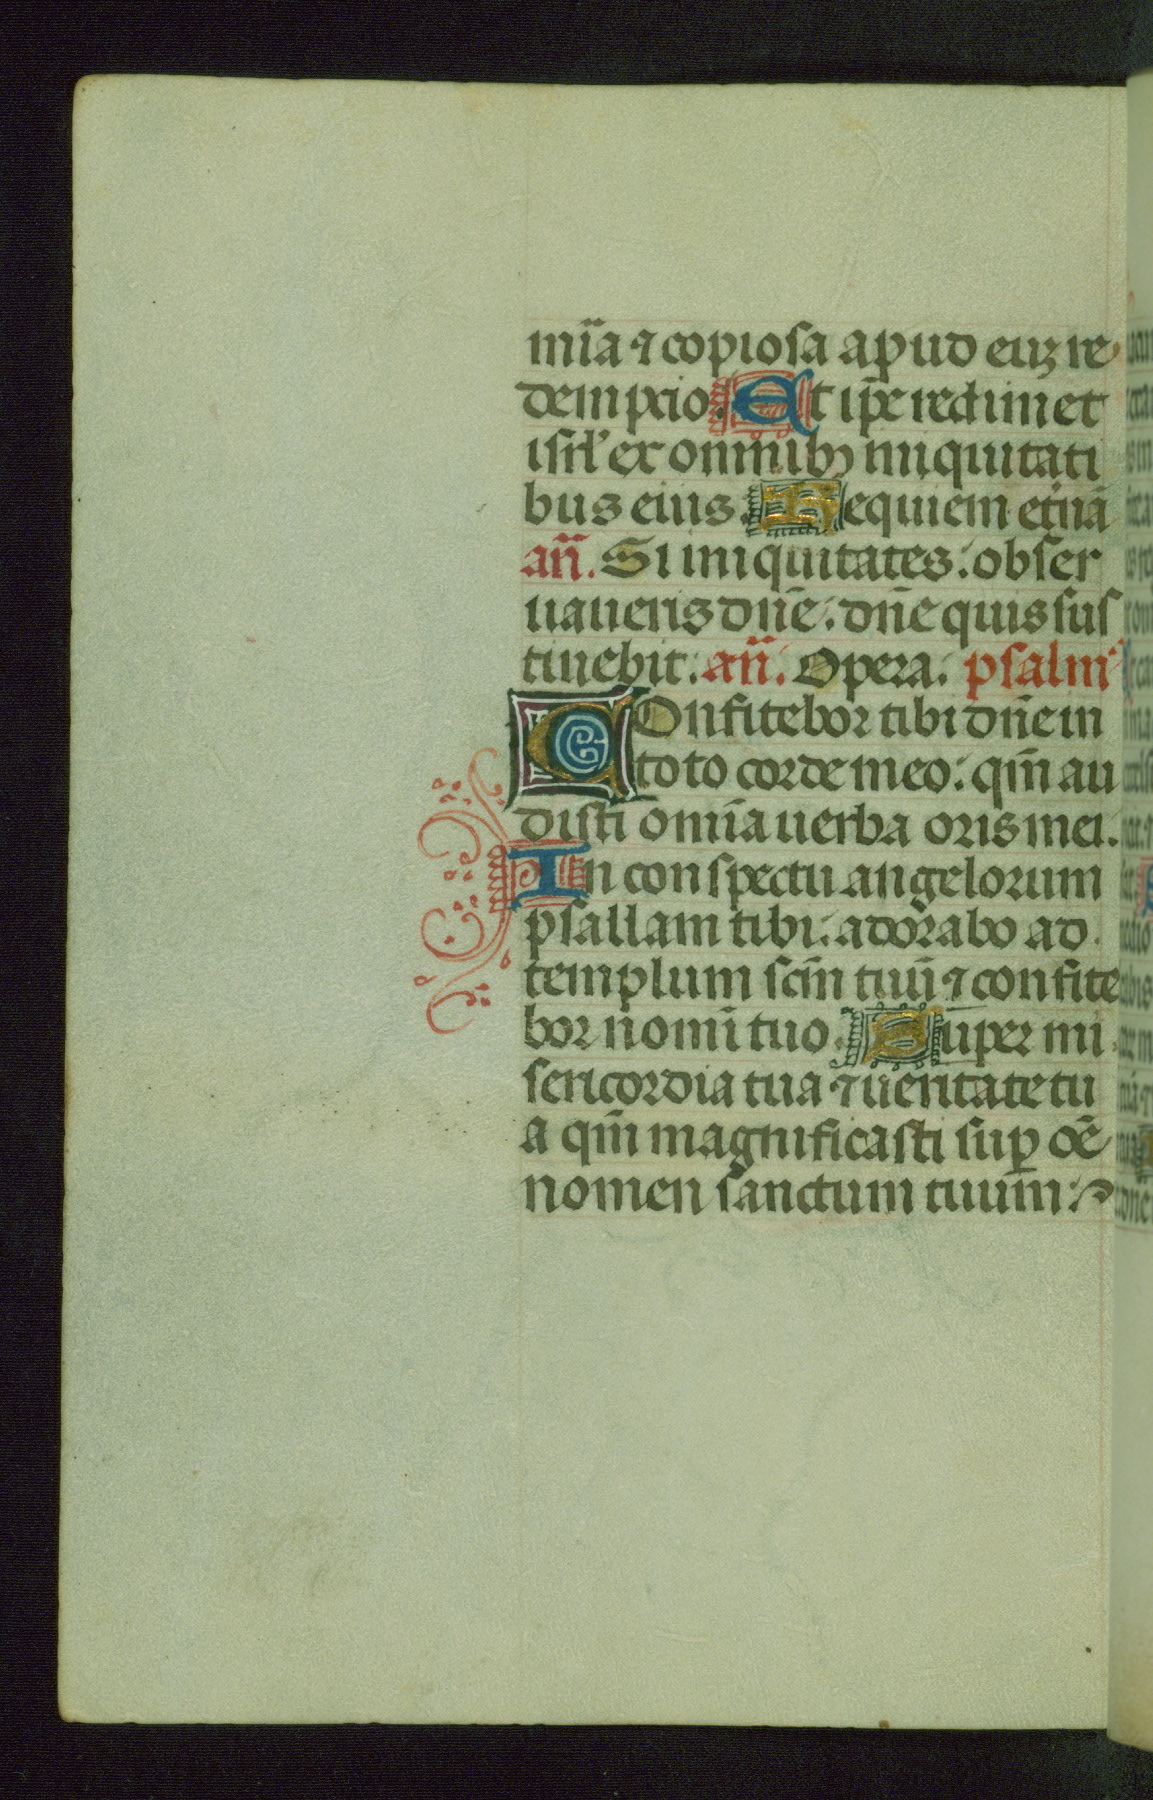 mīa ⁊ copiosa apud euꝫ re
dempcio. Et ip̄e redimet
isrl' ex omnibꝫ iniquitati
bus eius. Requiem et̄nā
añ. Si iniquitates: obser
uaueris dn̄e: dn̄e quis sus
tinebit: añ. Opera. psalm'
COnfitebor tibi dn̄e in
toto corde meo: qm̄ au
disti om̄ia uerba oris mei.
In conspectu angelorum
psallam tibi: adorabo ad
templum scm̄ tuū ⁊ confite
bor nomī tuo. Super mi
sericordia tua ⁊ ueritate tu
a qm̄ magnificasti suꝑ oē
nomen sanctum tuum: